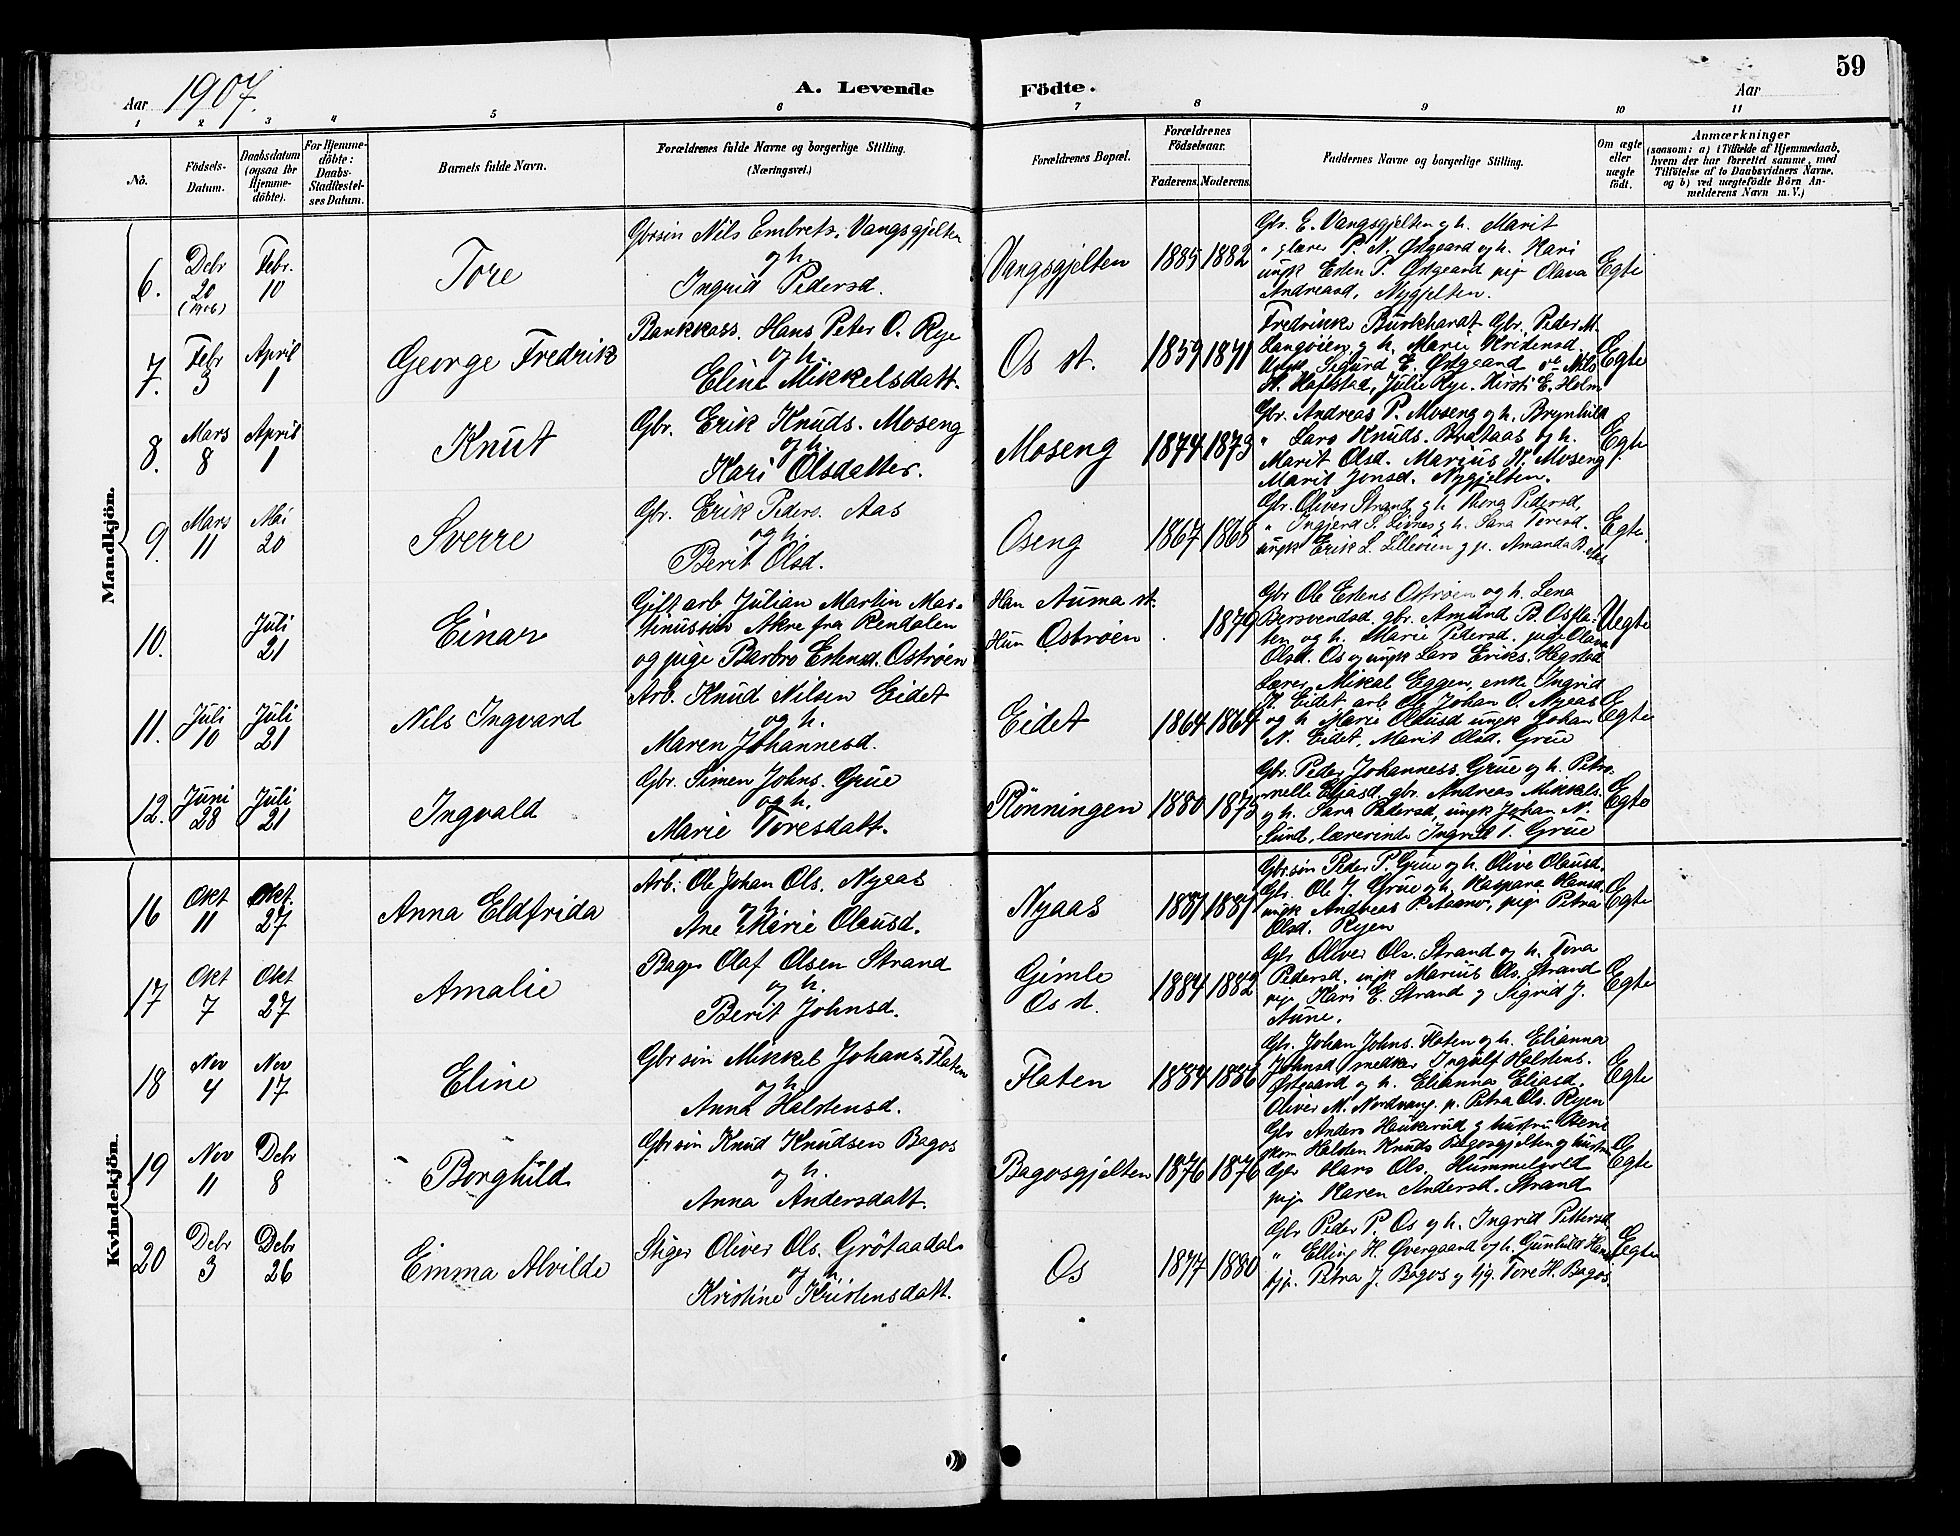 Aar 1907.
A. Levende
Födte.
Aar
59
1 2 3 4 5 6 7 8 9 10 11
No.
Födsels-Datum.
Daabsdatum (ogsaa for Hjemmedöbte).
For Hjemmedöbte: Daabs-Stadfæstelses Datum.
Barnets fulde Navn.
Forældrenes fulde Navne og borgerlige Stilling. (Næringsvei.)
Forældrenes Bopæl.
Forældrenes Födselsaar.
Faderens. Moderens.
Faddernes Navne og borgerlige Stilling.
Om ægte eller uægte födt.
Anmærkninger
(saasom: a) i Tilfælde af Hjemmedaab,
hvem der har forrettet samme, med
Tilföielse af to Daabsvidners Navne,
og b) ved uægtefödte Börn Anmelderens Navn m. V.)
Mandkjön.
6. Debr 20 (1906) Febr. 10 Tore
Gbrsön Nils Embrets. Vangsgjelten
og h.
Ingrid Pedersd.
Vangsgjelten 1885 1882
Gbr. E. Vangsgjelten og h. Marit
" P. N. Østgaard og h. Kari
ungk Esten P. Østgaard pige Olava
Andreasd. Nygjelten.
Egte
7. Febr 3 April 1 George Fredrik
Bankkass. Hans Peter O. Rye
og h.
Eline Mikkelsdatt.
Os st. 1859 1871
Fredrikke Burkhardt Gbr. Peder M.
Langøien og h. Marie
Sigurd E. Østgaard Nils
H. Hafstad, Julie Rye. Kirsti E. Holm
Egte
8. Mars 8 April 1 Knut
Gbr. Erik Knuds. Moseng
og h.
Kari Olsdatter.
Moseng 1874 1873
Gbr. Andreas P. Moseng og h. Brynhild
" Lars Knuds. Brataas og h.
Marit Olsd. Marius N. Moseng
Marit Jonsd. Nygjelten.
Egte
9. Mars 11 Mai 20 Sverre
Gbr. Erik Peders. Aas
og h.
Berit Olsd.
Oseng 1867 1868
Gbr. Oliver Strand og h Pedersd,
" Ingjerd S. og h. Sara Toresd.
ungk Erik L. Lilleöien g p. Amanda B. Aas
Egte.
10. Juli 21 Einar
Gift arb Julian Martin Mar-
tinussen Akre fra Rendalen
og pige Barbro Estensd. Oströen
Han Auma st.
Hun Oströen. 1879
Gbr Ole Estens Oströen og h. Lena
Bersvendsd. gbr. Amund B. Osfla-
ten og h. Marie Pedersd. pige Olava
Olsd. Os og ungk Lars Eriks. Hegstad
Uegte
11. Juli 10 Juli 21 Nils Ingvard
Arb. Knud Nilsen Eidet
og h.
Maren Johannesd.
Eidet 1864 1864
Lærer Mikal Eggen, enke Ingrid
Eidet arb Ole Johan O. Nyeas
og h Marie Olausd ungk Johan
N. Eidet, Marit Olsd. Grue
Egte
12. Juni 28 Juli 21 Ingvald
Gbr. Simen Johns. Grue
og h.
Marie Toresdatt.
Rönningen 1880 1875
Gbr. Peder Johanness. Grue og h. Petro-
nelle Eliasd. gbr. Andreas Mikkels.
og h. Sara Pedersd, ungk Johan N.
Sund, lærerinde Ingrid T. Grue
Egte
Kvindekjön.
16 Okt 11 Okt. 27 Anna Eldfrida
Arb. Ole Johan Ols. Nyeas
og h
Ane Marie Olausd.
Nyaas 1881 1881
Gbrsön Peder P. Grue og h. Olive Olausd.
Gbr. Ole J. Grue og h. Kaspara Hansd.
ungk Andreas P. pige Petra
Olsd. Ryen
Egte
17 Okt 7 Okt 27 Amalie
Bager Olaf Olsen Strand
og h.
Berit Johnsd.
Gimle
Os st. 1884 1882
Gbr Oliver Ols. Strand og h. Tora
Pedersd. ungk Marius Ols. Strand
pige Kari E. Strand g Sigrid J.
Aune.
Egte
18 Nov 4 Nov 17 Eline
Gbr sön Mikkel Johans. Flaten
og h.
Anna Halstensd.
Flaten 1884 1886
Gbr. Johan Johns. Flaten og h. Elianna
Johnsd Ingulf Halstens.
Østgaard og h. Elianna Eliasd.
Oliver M. Nordvang. p. Petra Ols. Ryen
Egte
19 Nov 11 Debr 8 Borghild
Gbr sön Knud Knudsen Bagos
og h.
Anna Andersdatt.
Bagosgjelten 1876 1876
Gbr Anders Haukerud g hustru
Halsten Knuds Bagosgjelten g hustru
Gbr Lars Ols. Hummelvold
pige Karen Andersd. Strand
Egte
20 Debr 3 Debr 26 Emma Alvilde
Stiger Oliver Ols. Grötaadal
og h
Kristine Kristensdatt.
Os 1877 1880
Gbr Peder P. Os og h. Ingrid Pettersd
" Elling H. Øvergaard og h. Gunhild
tjp. Petra J. Bagos g tjg. Tore H. Bagos
Egte